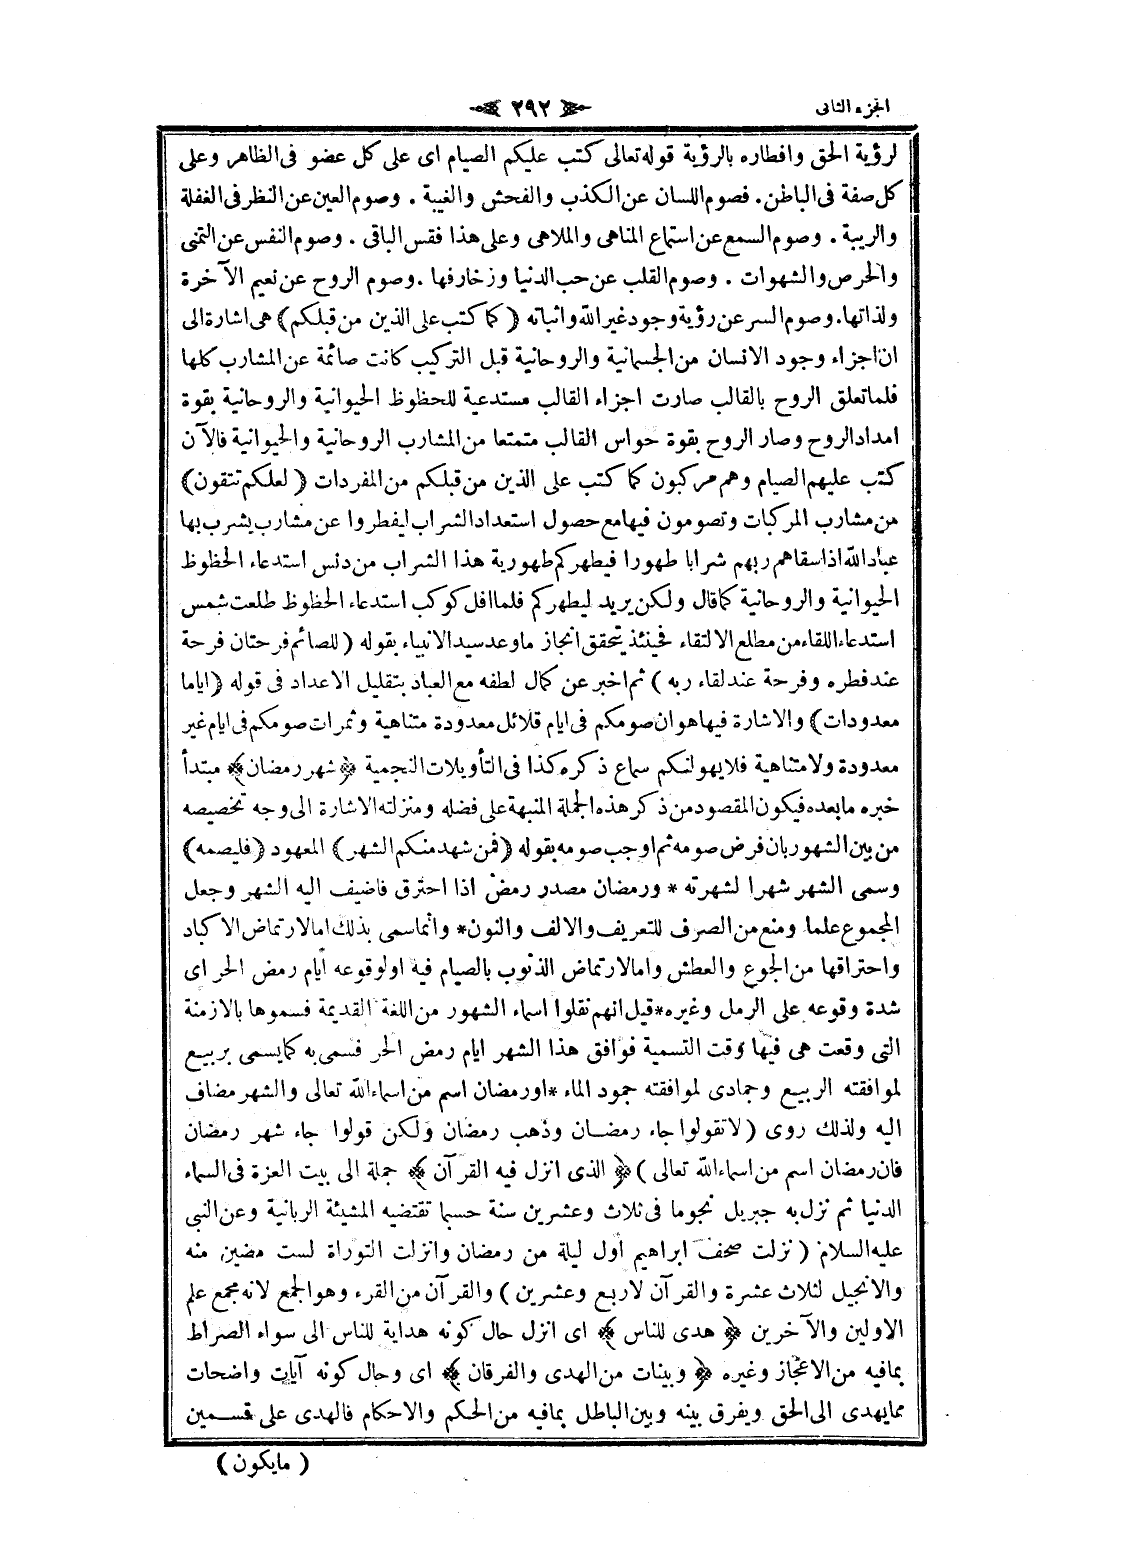 الجزء الثانى
٢٩٢
لرؤية الحق وافطاره بالرؤية قوله تعالى كتب عليكم الصيام اى على كل عضو فى الظاهر وعلى
كل صفة فى الباطن . فصوم اللسان عن الكذب والفحش والغيبة . وصوم العين عن النظر فى الغفلة
والريبة . وصوم السمع عن استماع المناهى والملاهى وعلى هذا فقس الباقى . وصوم النفس عن التمنى
والحرص والشهوات . وصوم القلب عن حب الدنيا وزخارفها . وصوم الروح عن نعيم الآخرة
ولذاتها . وصوم السر عن رؤية وجود غير الله واثباته ( كما كتب على الذين من قبلكم ) هى اشارة الى
ان اجزاء وجود الانسان من الجسمانية والروحانية قبل التركيب كانت صائمة عن المشارب كلها
فلما تعلق الروح بالقالب صارت اجزاء القالب مستدعية للحظوظ الحيوانية والروحانية بقوة
امداد الروح وصار الروح بقوة حواس القالب متمتعا من المشارب الروحانية والحيوانية فالآن
كتب عليهم الصيام وهم مركبون كما كتب على الذين من قبلكم من المفردات ( لعلكم تتقون )
من مشارب المركبات وتصومون فيها مع حصول استعداد الشراب ليفطروا عن مشارب يشرب بها
عباد الله اذا سقاهم ربهم شرابا طهورا فيطهركم طهورية هذا الشراب من دنس استدعاء الحظوظ
الحيوانية والروحانية كما قال ولكن يريد ليطهركم فلما افل كوكب استدعاء الحظوظ طلعت شمس
استدعاء اللقاء من مطلع الالتقاء فحينئذ يتحقق انجاز ما وعد سيد الانبياء بقوله ( للصائم فرحتان فرحة
عند فطره وفرحة عند لقاء ربه ) ثم اخبر عن كمال لطفه مع العباد بتقليل الاعداد فى قوله ( اياما
معدودات ) والاشارة فيها هو ان صومكم فى ايام قلائل معدودة متناهية وثمرات صومكم فى ايام غير
معدودة ولا متناهية فلا يهولنكم سماع ذكره كذا فى التأويلات النجمية ﴿ شهر رمضان ﴾ مبتدأ
خبره ما بعده فيكون المقصود من ذكر هذه الجملة المنبهة على فضله ومنزلته الاشارة الى وجه تخصيصه
من بين الشهور بان فرض صومه ثم اوجب صومه بقوله ( فمن شهد منكم الشهر ) المعهود ( فليصمه )
وسمى الشهر شهرا لشهرته * ورمضان مصدر رمض اذا احترق فاضيف اليه الشهر وجعل
المجموع علما ومنع من الصرف للتعريف والالف والنون * وانما سمى بذلك اما لارتماض الاكباد
واحتراقها من الجوع والعطش واما لارتماض الذنوب بالصيام فيه او لوقوعه أيام رمض الحر اى
شدة وقوعه على الرمل وغيره * قيل انهم نقلوا اسماء الشهور من اللغة القديمة فسموها بالازمنة
التى وقعت هى فيها وقت التسمية فوافق هذا الشهر ايام رمض الحر فسمى به كما يسمى بربيع
لموافقته الربيع وجمادى لموافقته جمود الماء * او رمضان اسم من اسماء الله تعالى والشهر مضاف
اليه ولذلك روى ( لا تقولوا جاء رمضان وذهب رمضان ولكن قولوا جاء شهر رمضان
فان رمضان اسم من اسماء الله تعالى ) ﴿ الذى انزل فيه القرآن ﴾ جملة الى بيت العزة فى السماء
الدنيا ثم نزل به جبريل نجوما فى ثلاث وعشرين سنة حسبما تقتضيه المشيئة الربانية وعن النبى
عليه السلام ( نزلت صحف ابراهيم أول ليلة من رمضان وانزلت التوراة لست مضين منه
والانجيل لثلاث عشرة والقرآن لاربع وعشرين ) والقرآن من القرء وهو الجمع لانه مجمع علم
الاولين والآخرين ﴿ هدى للناس ﴾ اى انزل حال كونه هداية للناس الى سواء الصراط
بما فيه من الاعجاز وغيره ﴿ وبينات من الهدى والفرقان ﴾ اى وحال كونه آيات واضحات
مما يهدى الى الحق ويفرق بينه وبين الباطل بما فيه من الحكم والاحكام فالهدى على قسمين
( ما يكون )